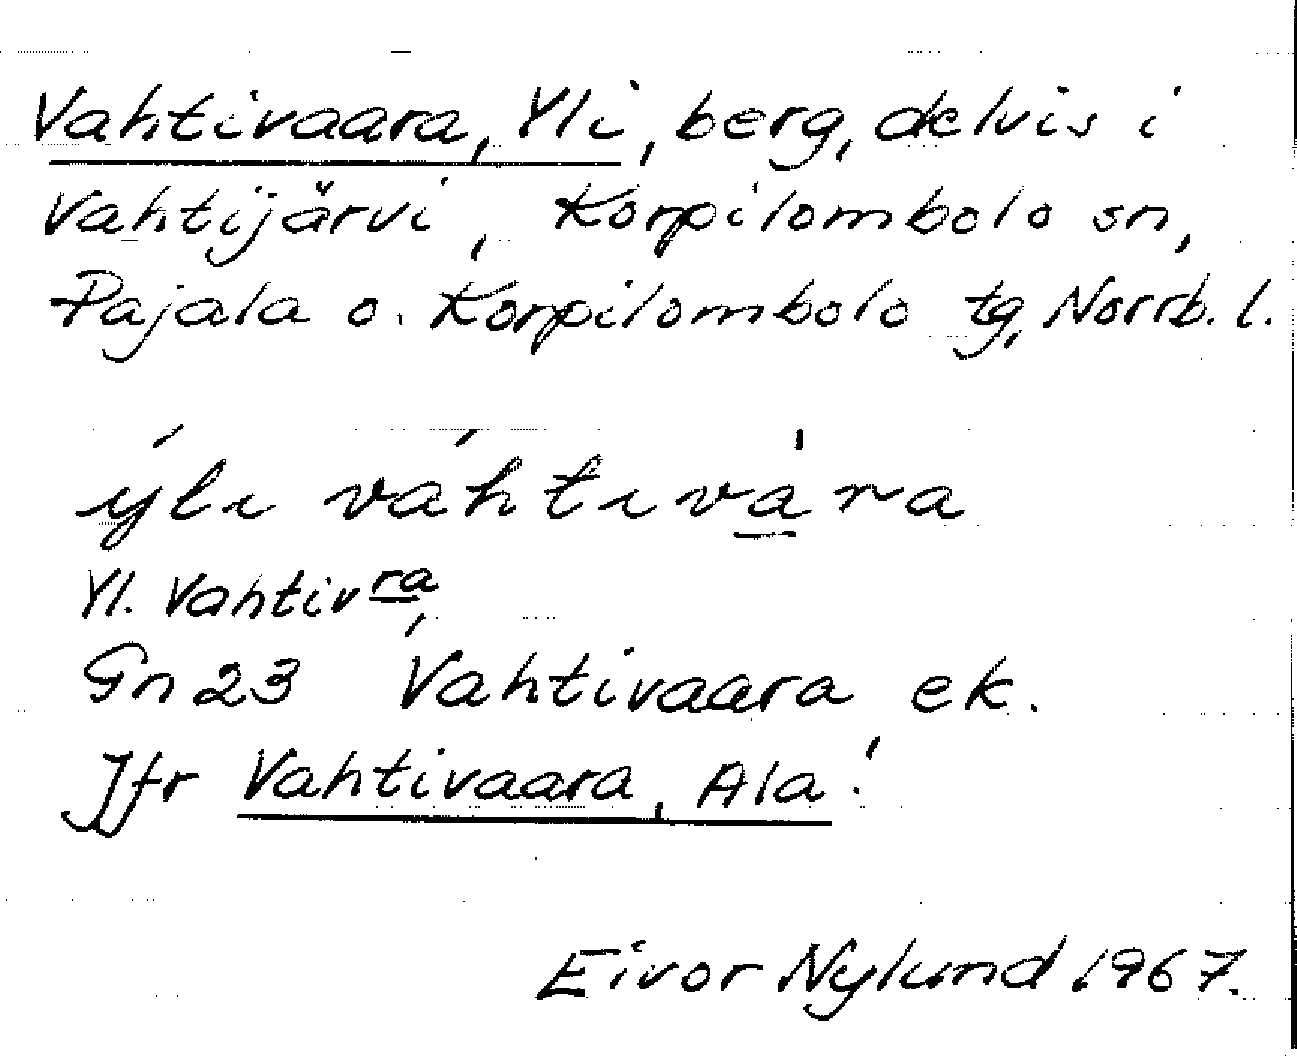 Vahtivaara, Yli, berg, delvis i
Vahtijärvi, Korpilombolo sn,
Pajala o. Korpilombolo tg, Norrb. l.
ýli váhtivàra
Yl. Vahtivra,
Gn 23 Vahtivaara ek.
Jfr Vahtivaara, Ala!
Eivor Nylund 1967.